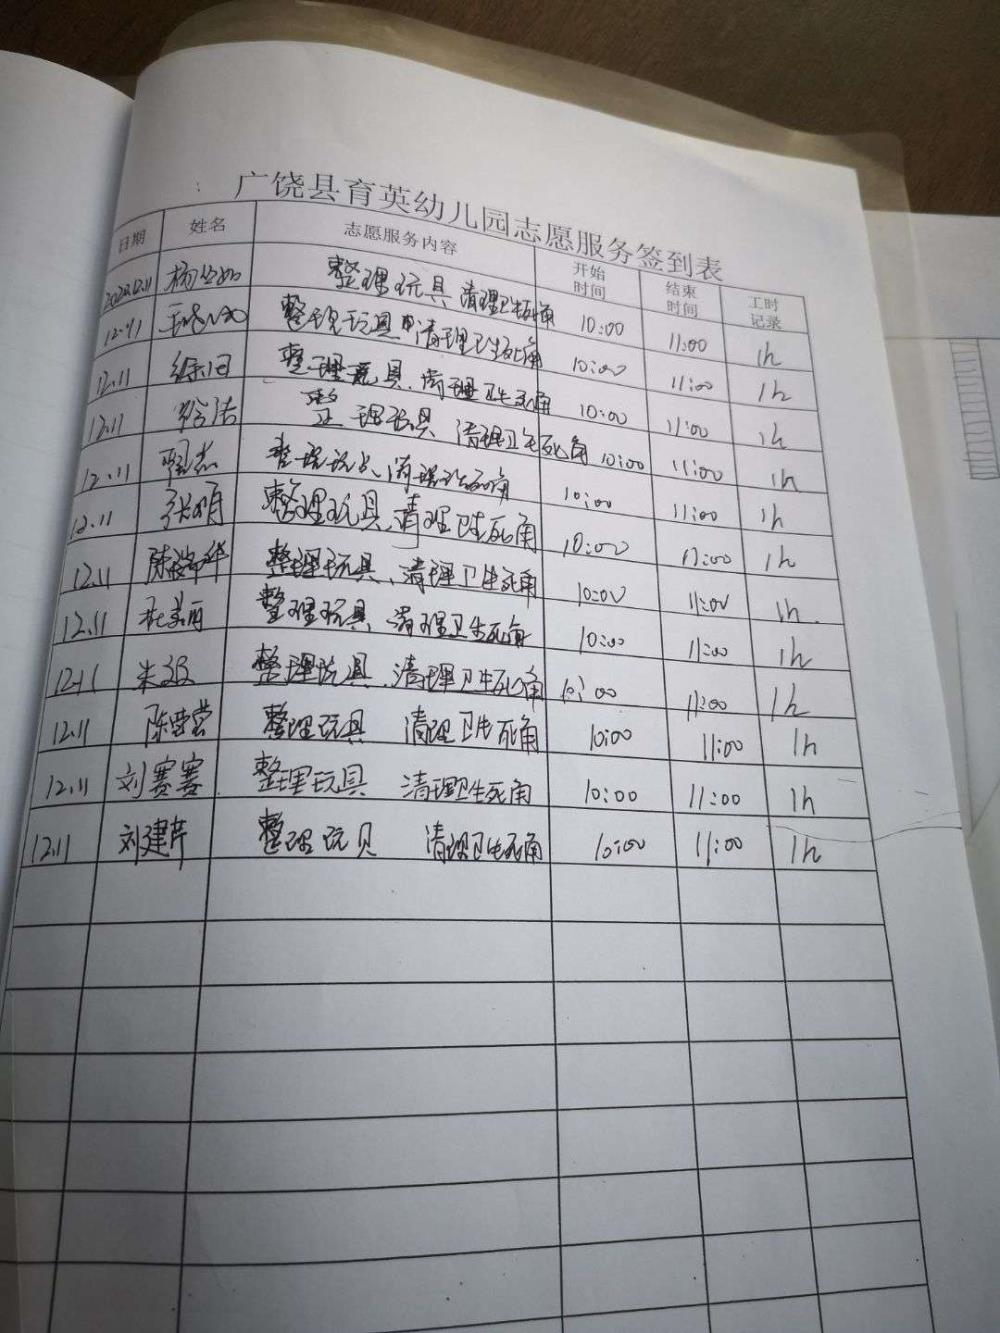 广饶县育英幼儿园志愿服务签到表
日期 姓名 志愿服务内容 开始时间 结束时间 工时记录
整理玩具 清理卫生死角 10:00 11:00 1h
12.11 整理玩具 清理卫生死角 10:00 11:00 1h
12.11 整理玩具、清理卫生死角 10:00 11:00 1h
12.11 整理玩具 清理卫生死角 10:00 11:00 1h
12.11 整理玩具、清理卫生死角 10:00 11:00 1h
12.11 张明 整理玩具、清理卫生死角 10:00 11:00 1h
12.11 整理玩具、清理卫生死角 10:00 11:00 1h
12.11 杜美丽 整理玩具、清理卫生死角 10:00 11:00 1h
12.11 整理玩具、清理卫生死角 10:00 11:00 1h
12.11 陈雪莹 整理玩具 清理卫生死角 10:00 11:00 1h
12.11 刘赛赛 整理玩具 清理卫生死角 10:00 11:00 1h
12.11 刘建芹 整理玩具 清理卫生死角 10:00 11:00 1h